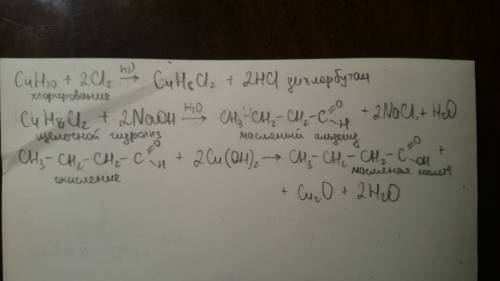 C₄H₁₀ + 2Cl₂ —hν→ C₄H₈Cl₂ + 2HCl дихлорбутан
хлорирование
C₄H₈Cl₂ + 2NaOH —H₂O→ CH₃-CH₂-CH₂-C(=O)-H + 2NaCl + H₂O
щелочной гидролиз масляный альдегид
CH₃-CH₂-CH₂-C(=O)-H + 2Cu(OH)₂ → CH₃-CH₂-CH₂-C(=O)-OH +
окисление масляная кислота
+ Cu₂O + 2H₂O